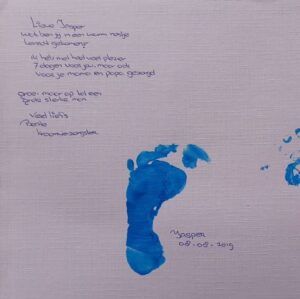 Lieve Jesper
wat ben jij in een warm nestje
terecht gekomen
Ik heb met heel veel plezier
7 dagen voor jou, maar ook
voor je mama en papa gezorgd
Groei maar op tot een
grote sterke man
Veel liefs
kraamverzorgster
Jesper
08-08-2019